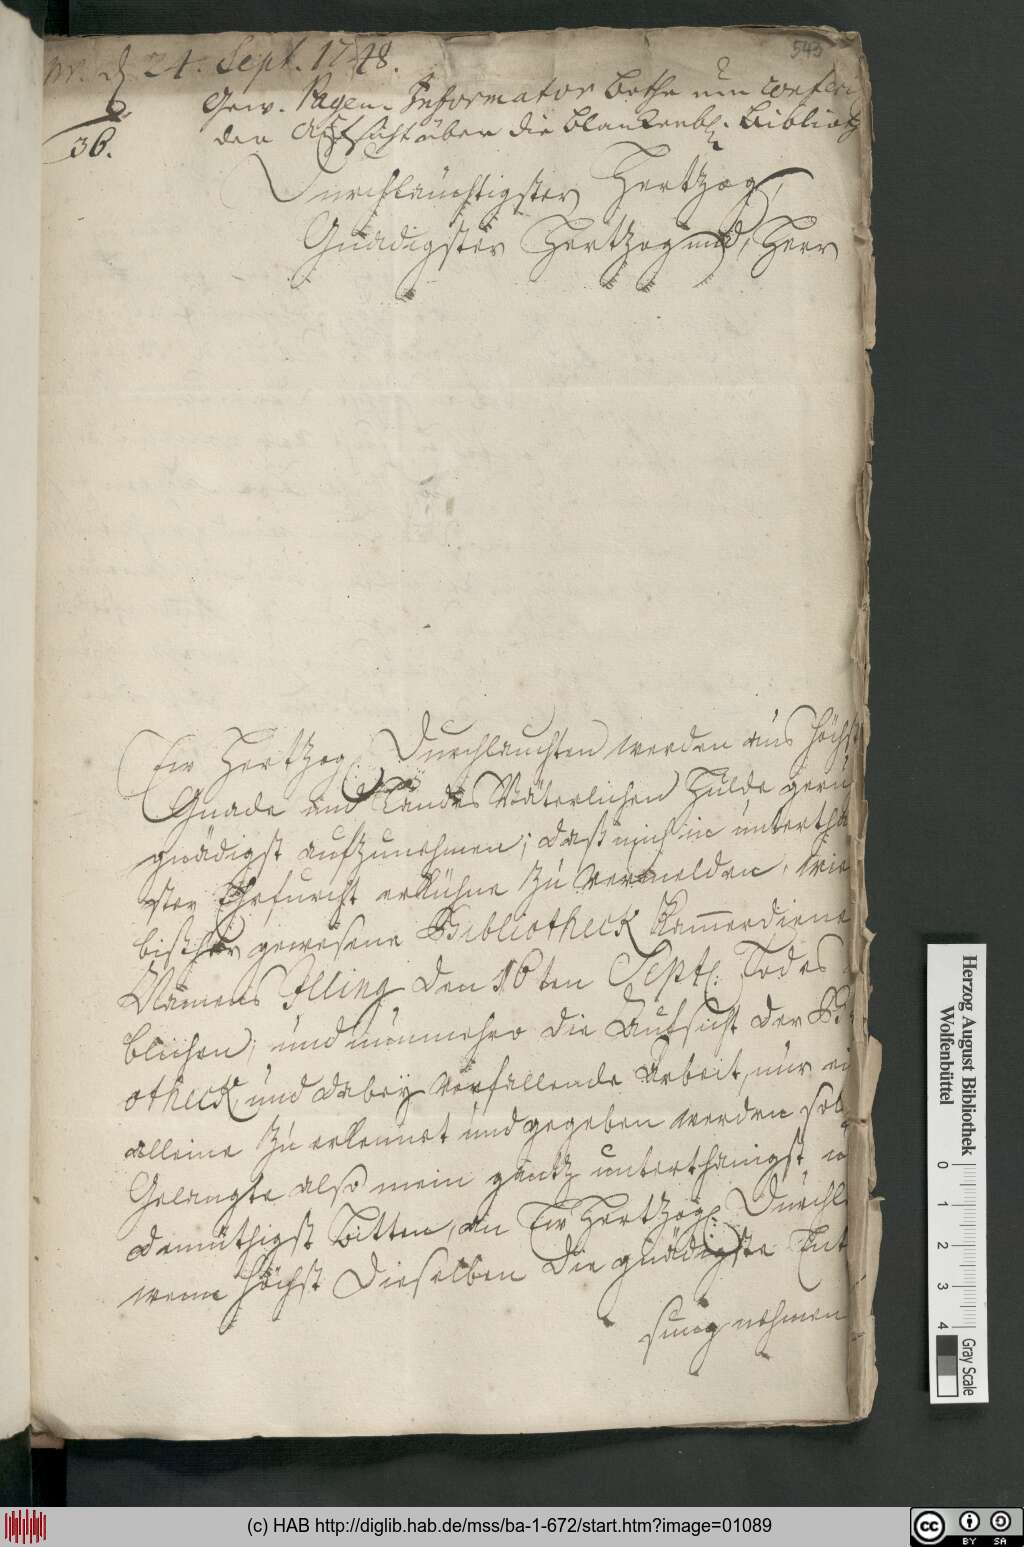 d. 24. Sept. 1748.
543
36.
Gew. Pagen-Informator Bothe um
den Aufsicht über die Blankenb.
Durchläuchtigster Hertzog,
Gnädigster Hertzog und Herr
Ew Hertzog. Durchlauchten werden aus höchst
Gnade und Landes Väterlichen Hulde geru
gnädigst aufzunehmen; daß mich in unterthä
ster Ehrfurcht erkühne zu vermelden, wie
bißher gewesene Bibliotheck Kammerdiene
Namens Illing den 16ten Sept. Todes
blichen; und nunmehro die Aufsicht der Bi
otheck und dabey vorfallende Arbeit, nur
alleine zu erkennet und gegeben werden
Gelangte also mein gantz unterthänigst
demüthigst Bitten, an Ew Hertzog. Durchl
wenn höchst Dieselben die gnädigste Ent
nehmen
Herzog August Bibliothek
Wolfenbüttel
0 1 2 3 4
Gray Scale
(c) HAB http://diglib.hab.de/mss/ba-1-672/start.htm?image=01089
cc BY SA